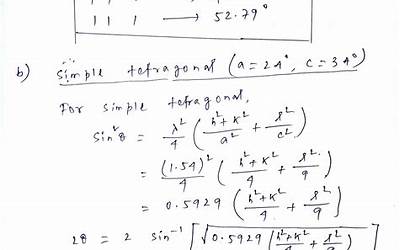 1 1 1 ⟶ 52.79°
b) simple tetragonal (a=2A°, c=3A°)
For simple tetragonal,
sin²θ = λ²/4 (h²+k²/a² + l²/c²)
= (1.54)²/4 (h²+k²/4 + l²/9)
= 0.5929 (h²+k²/4 + l²/9)
2θ = 2 sin⁻¹ [√0.5929 (h²+k²/4 + l²/9)]